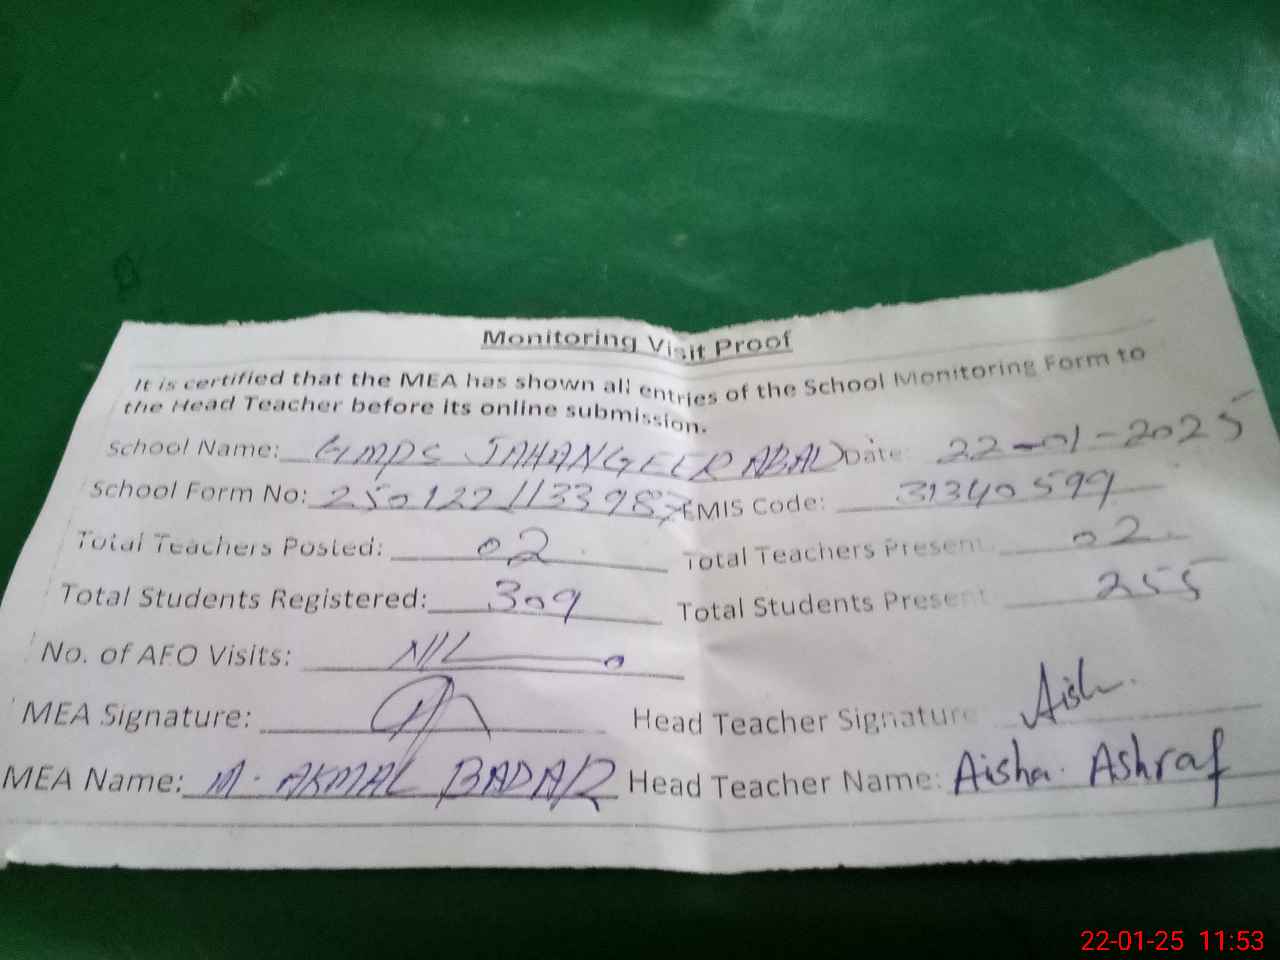 Monitoring Visit Proof
It is certified that the MEA has shown all entries of the School Monitoring Form to
the Head Teacher before its online submission.
School Name: GMPS JAHANGEER ABAD Date: 22-01-2025
School Form No: 2501221133987 EMIS Code: 31340599
Total Teachers Posted: 02 Total Teachers Present 02
Total Students Registered: 309 Total Students Present 255
No. of AFO Visits: NIL
MEA Signature: Head Teacher Signature Aish
MEA Name: M. AKMAL BADAR Head Teacher Name: Aisha Ashraf
22-01-25 11:53